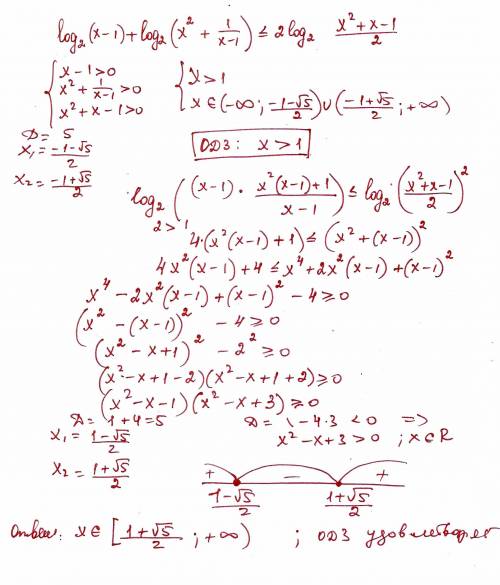 log₂(x-1)+log₂(x² + 1/(x-1)) ≤ 2log₂ (x²+x-1)/2
{ x-1>0
x² + 1/(x-1) >0
x²+x-1>0
{ x>1
x∈(-∞; (-1-√5)/2)∪((-1+√5)/2; +∞)
D= 5
x₁= (-1-√5)/2
x₂= (-1+√5)/2
ОДЗ: x>1
log₂((x-1)·(x²(x-1)+1)/(x-1)) ≤ log₂((x²+x-1)/2)²
2>1
4·(x²(x-1)+1) ≤ (x²+(x-1))²
4x²(x-1)+4 ≤ x⁴+2x²(x-1)+(x-1)²
x⁴-2x²(x-1)+(x-1)²-4≥0
(x²-(x-1))²-4≥0
(x²-x+1)²-2²≥0
(x²-x+1-2)(x²-x+1+2)≥0
(x²-x-1)(x²-x+3)≥0
D= 1+4=5
x₁= (1-√5)/2
x₂= (1+√5)/2
D= 1-4·3 <0 =>
x²-x+3>0 ; x∈R
+ − +
(1-√5)/2 (1+√5)/2
Ответ: x∈[(1+√5)/2; +∞) ; ОДЗ удовлетворяет